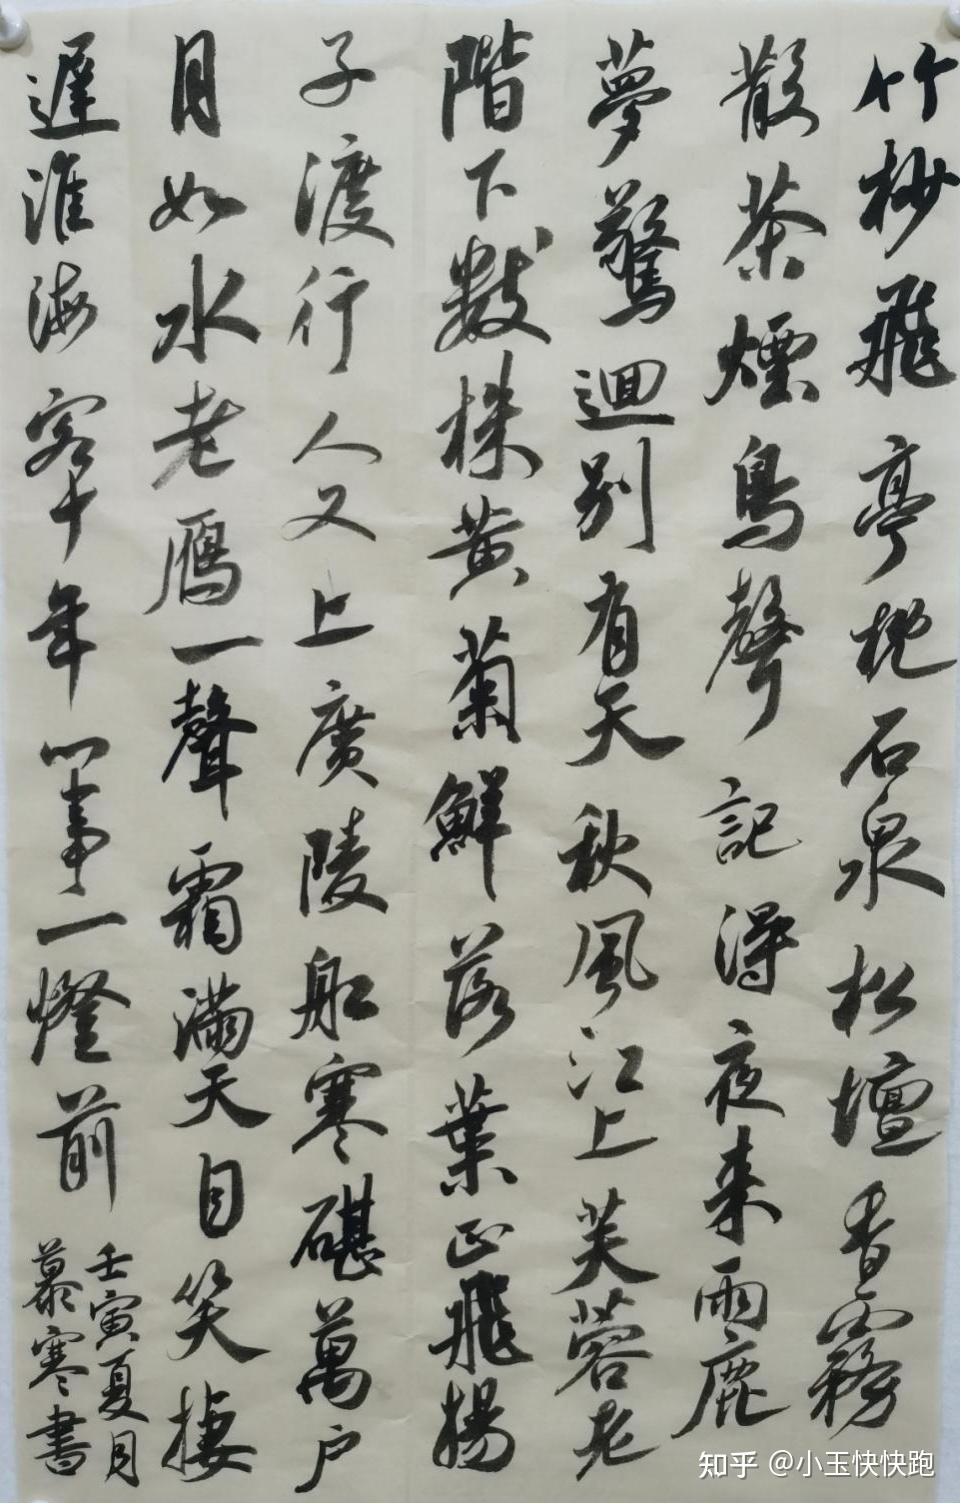 竹杪飛亭枕石泉松壇香霧
散茶煙鳥聲記得夜来雨鹿
夢驚迴别有天秋風江上芙蓉老
階下數株黄菊鮮落葉正飛揚
子渡行人又上廣陵船寒碪萬户
月如水老鴈一聲霜滿天自笑棲
遲淮海客十年心事一燈前
壬寅夏月
慕寒書
知乎 @小玉快快跑